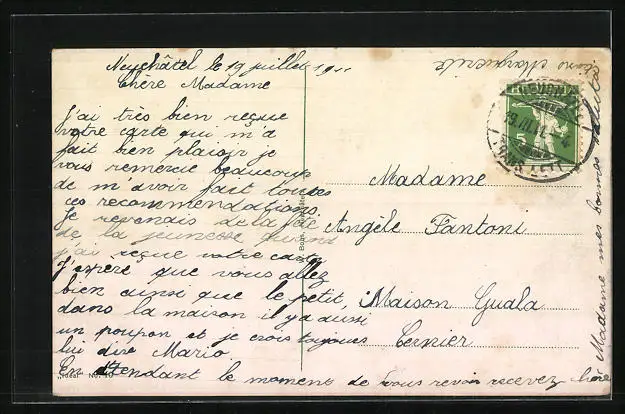 Neuchâtel le 19 juillet 1911
Chère Madame
J'ai très bien reçue
votre carte qui m'a
fait bien plaisir je
vous remercie beaucoups
de m'avoir fait toutes
ces recommendations.
Je revenais de la fête
de la jeunesse quand
j'ai reçue votre carte
J'espère que vous allez
bien ainsi que le petit,
dans la maison il y a aussi
un poupon et je crois toujours
lui dire Mario.
En attendant le moment de vous revoir recevez chère
Madame mes bonnes saluta
tions Marguerite
Madame
Angèle Fantoni
Maison Guala
Cernier
"Idéal" No.